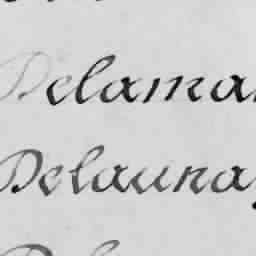 Delamar
Delaunay